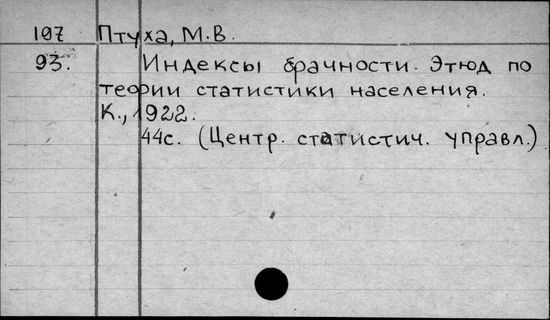 197 Птуха, М.В.
93. Индексы брачности. Этюд по
теории статистики населения.
К., 1922.
44с. (Центр. статистич. управл.)